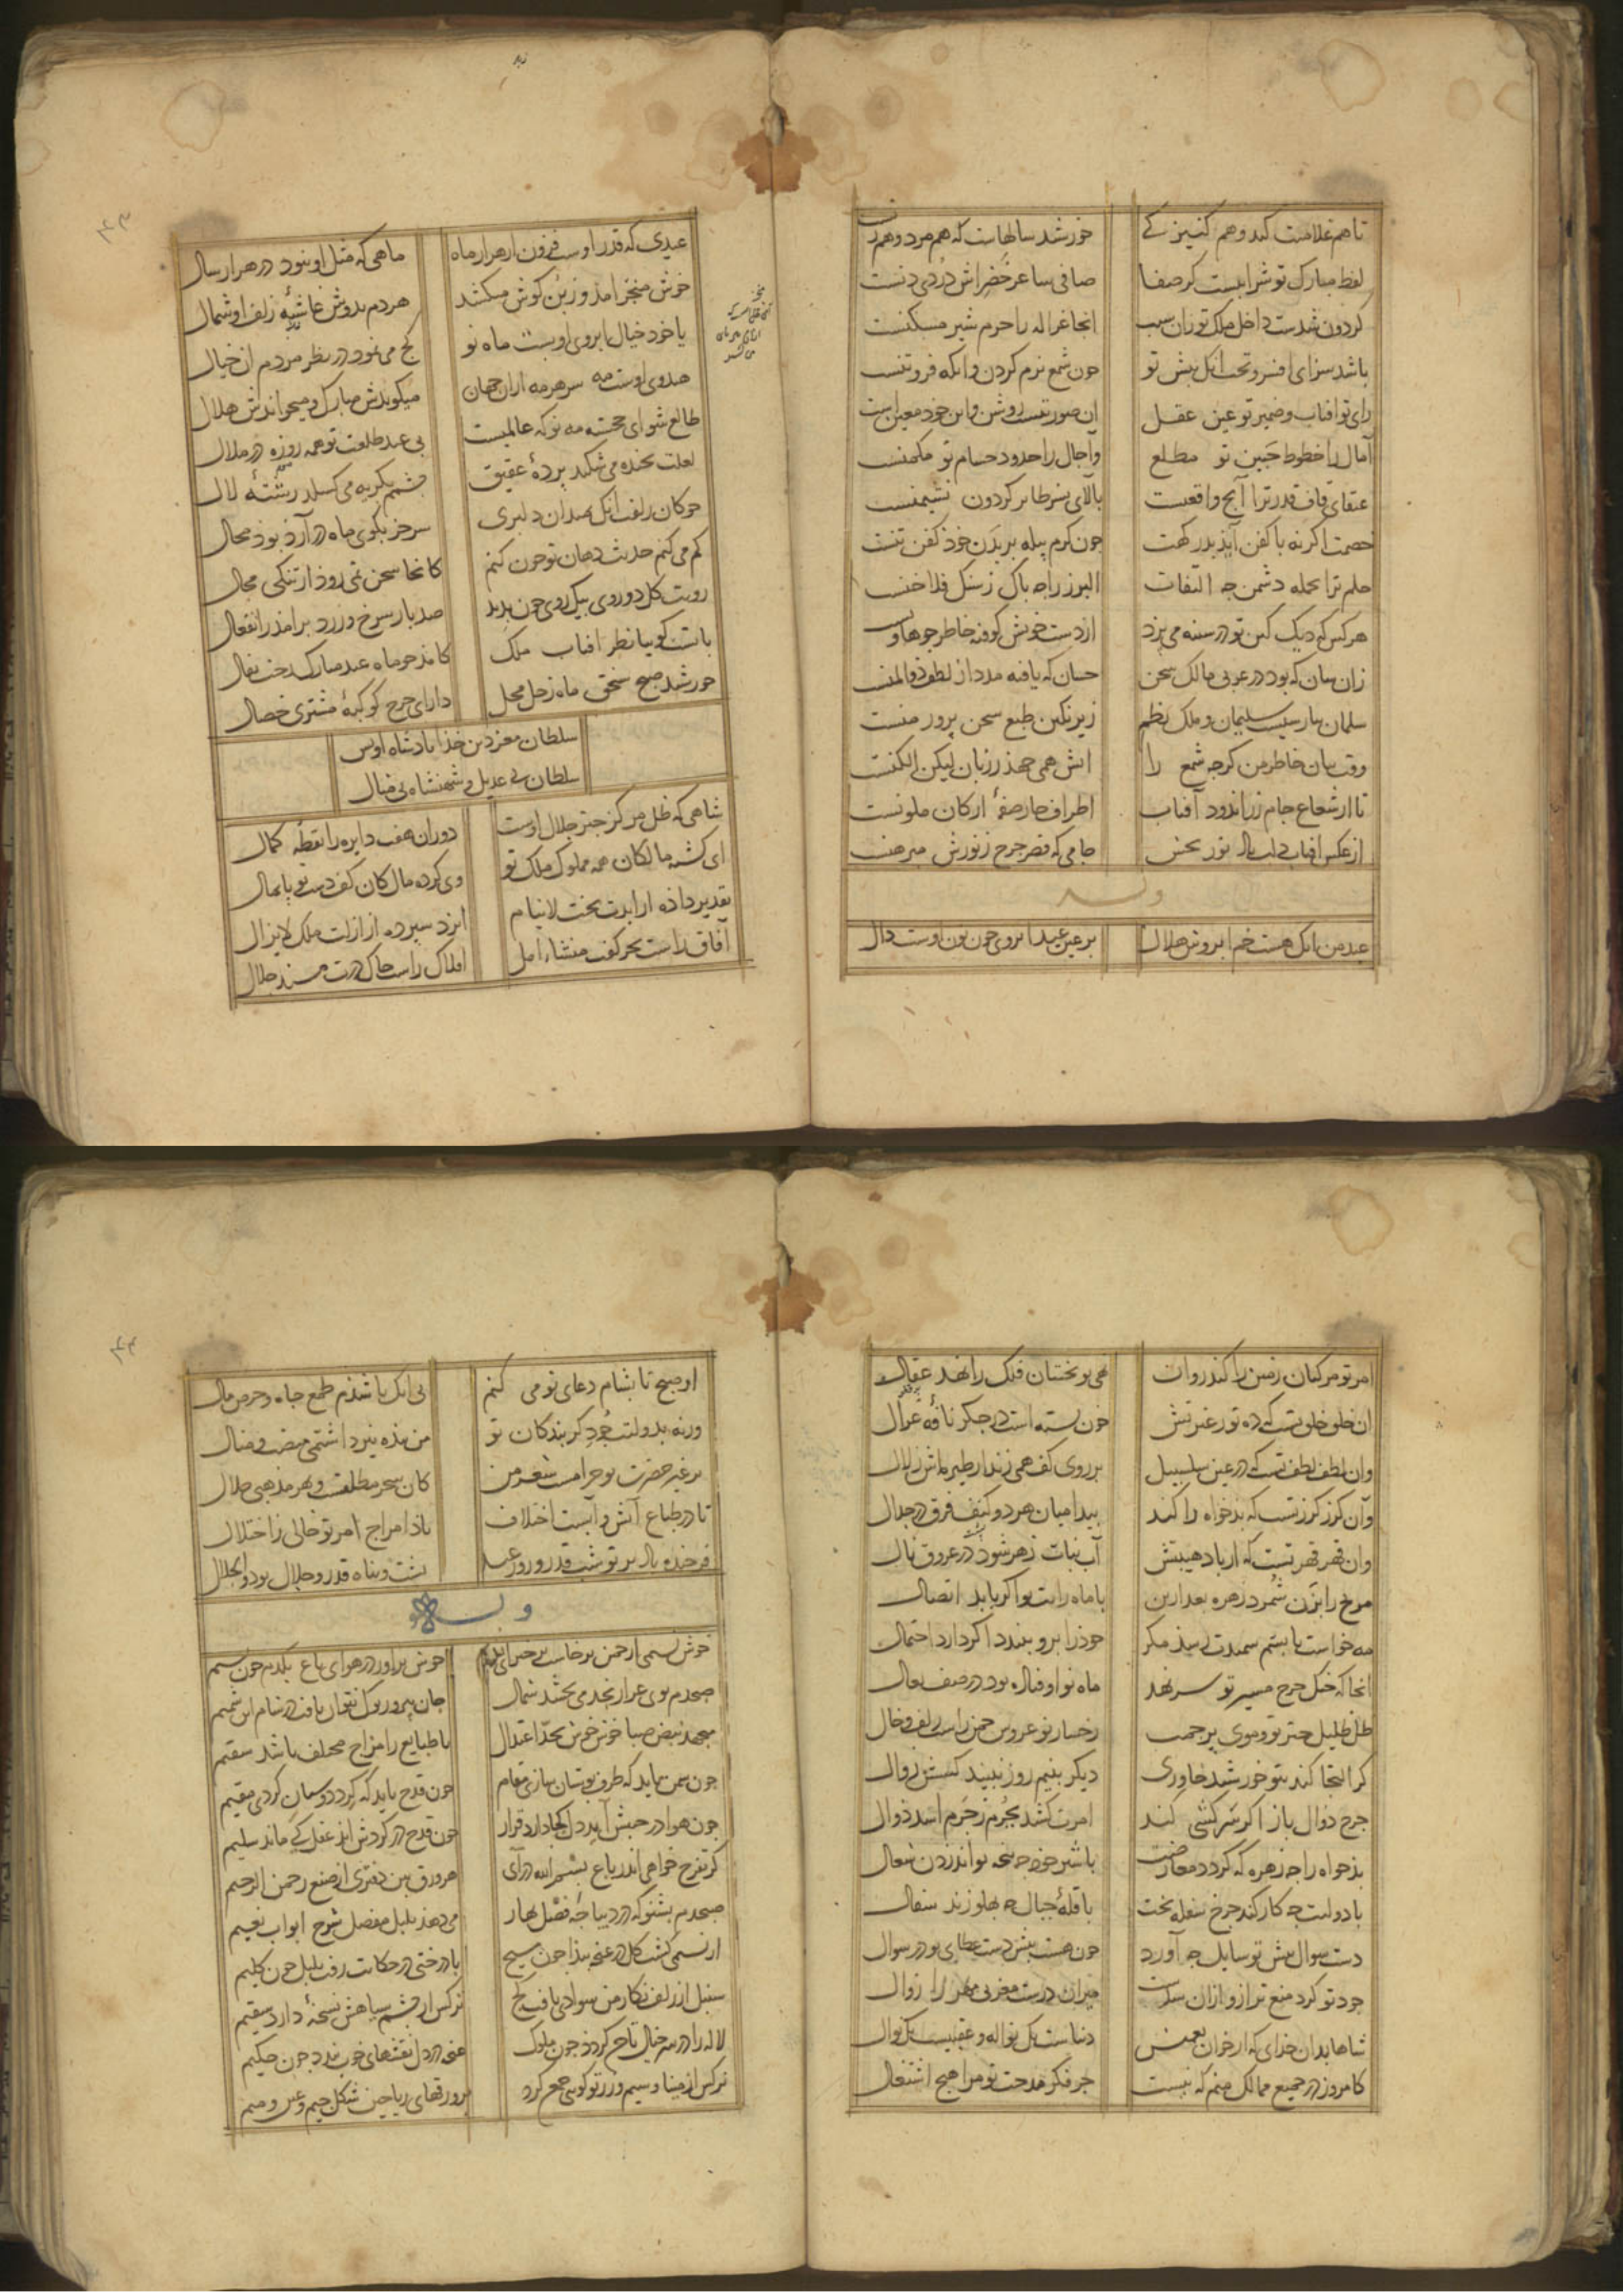 تا هم غلامیت کند و هم کنیزکے خورشید سالهاست که هم مرد و هم زنست
لفظ مبارک تو شرابیست کز صفا صافی ساغر خضراش دردی دنست
کردون شدست داخل ملک تو زان سبب انجا غزاله را حرم شیر مسکنست
باشد سزای افسر و تخت انک پیش تو چون شمع نرم کردن و انکه فروتنست
رای تو افتاب و ضمیر تو عین عقل این صورتیست روشن و این خود معین است
آمال را خطوط جبین تو مطلع واجال را حدود حسام تو مکمنست
عنقای قاف قدر ترا آنج واقعست بالای نسر طایر کردون نشیمنست
خصمت اکر نه با کفن آید بدرکهت چون کرم پیله بر بدن خود کفن تنست
حلم ترا بحمله دشمن چه التفات البرز را چه باک ز سنک فلاخنست
هر کس که دیک کین تو در سینه می پزد از دست خویش کوفته خاطر چو هاونست
زان سان که بود در عربی مالک سخن حسان که یافته مدد از لطف ذوالمنست
سلمان پارسیست سلیمان و ملک نظم زیر نکین طبع سخن پرور منست
وقت بیان خاطر من کرچه شمع را اتش همی جهد ز زبان لیکن الکنست
تا از شعاع جام زراندود آفتاب اطراف چار صفهٔ ارکان ملونست
از عکس افتاب دلت باد نور بخش جامی که قصر چرخ ز نورش مبرهنست
وله
عید من انک هست خم ابروش هلال بر عین عید ابروی چون نون اوست دال
عیدی که قدر اوست فزون از هزار ماه ماهی که مثل او نبود در هزار سال
خوش میخرامد و ز بن کوش میکشد هر دم بدوش غاشیهٔ زلف او شمال
یا خود خیال ابروی او بست ماه نو کج می نمود در نظر مردم ان خیال
هندوی اوست مه سر هر مه ازان جهان میکویدش مبارک و میخواندش هلال
طالع شو ای خجسته مه نو که عالمیست بی عید طلعت تو همه روزه در ملال
لعلت بخنده می شکند پردهٔ عقیق چشمم بکریه می کسلد رشتهٔ لال
چوکان زلفت انک بمیدان دلبری سر جز بکوی ماه در آرد بود محال
کم می کنم حدیث دهان تو چون کنم کانجا سخن نمی رود از تنکی مجال
رویت کل دو روی بیک روی چون بدید صد بار سرخ و زرد برامد ز انفعال
یا تست کوییا نظر افتاب ملک کامد چو ماه عید مبارک رخت بفال
خورشید صبح سنجق ماه زحل محل دارای چرخ کوکبهٔ مشتری خصال
سلطان معز دین خدا پادشاه اویس
سلطان بے عدیل و شهنشاه بی مثال
شاهی که ظل مرکز چتر جلال اوست دوران هفت دایره را نقطهٔ کمال
ای کشته مالکان همه مملوک ملک تو وی کرده مال کان کف دست تو پایمال
تقدیر داده از ابدت بخت لاینام ایزد سپرده از ازلت ملک لایزال
آفاق راست بحر کفت منشاء امل افلاک راست خاک درت مسند جلال
امر تو مرکبان زمین را کند روان نهی تو بختیان فلک را نهد عقال
ان خلق خلق تست که ده تو ز غیرتش خون بسته است در جکر نافهٔ غزال
وان لطف لطف تست که در عین سلسبیل بر روی کف همی زند از طیره اش زلال
وآن کرز کرز تست که بدخواه را کند پیدا میان هر دو کتف فرق در جدال
وان قهر قهر تست که از یاد هیبتش آب نبات زهر شود در عروق بال
مریخ را بزن شمرد زهره بعد ازین با ماه رایت تو اکر یابد اتصال
مه خواست تا بستم سمندت رسد مکر خود را برو ببندد اکر دارد احتمال
انجا که خیل چرخ مسیر تو سر نهد ماه نو اوفتاده بود در صف نعال
ظل ظلیل چتر تو و موی پرچمت رخسار نو عروس چمن راست زلف و خال
کر التجا کند بتو خورشید خاوری دیکر بنیم روز نبیند کسش زوال
چرخ دوال باز اکر سرکشی کند امرت کشد بجرم ز چرم اسد دوال
بدخواه را چه زهره که کردد معارضت با شیر خود چه پنجه تواند زدن شغال
با دولتت چه کار کند چرخ سفله بخت با قلهٔ جبال چه پهلو زند سفال
دست سوال پیش تو سایل چه آورد چون هست پیش دست عطای تو در سوال
جود تو کرد منع ترازو ازان سبب میزان درست مغربی مهر را زوال
شاها بدان خدای که از خوان نعمتش دنیاست یک نواله و عقبیست یک نوال
کامروز در جمیع ممالک منم که نیست جز فکر مدحت تو مرا هیچ اشتغال
از صبح تا بشام دعای تو می کنم بی انک باشدم طمع جاه و حرص مال
ورنه بدولت جود کر بندکان تو من بنده نیز داشتمی منصب و منال
بر غیر حضرت تو حرامست شعر من کان سحر مطلقست و بهر مذهبی حلال
تا در طباع آتش و آبست اختلاف باد امزاج امر تو خالی ز اختلال
فرخنده باد بر تو شب قدر و روز عید پشت و پناه قدر و جلال تو ذوالجلال
وله
خوش نسیمی از چمن برخاست برخیز ای ندیم خوش براور در هوای باغ یکدم چون نسیم
صبحدم بوی عرار نجد می بخشد شمال جان بپرور کو نتوان یافت در شام این شمیم
میجهد نبض صبا خوش خوش بحد اعتدال با طبایع را مزاج مختلف باشد سقیم
چون سمن باید که طرف بوستان سازی مقام چون قدح باید که کرد دوستان کردی مقیم
چون هوا در جنبش آید دل کجا دارد قرار چون قدح در کردش اید عقل کے ماند سلیم
کر تفرج خواهی اندر باغ بسم الله درآی هر ورق بین دفتری از صنع رحمن الرحیم
صبحدم بشنو که در دیباچهٔ فصل بهار می دهد بلبل مفصل شرح ابواب نعیم
از نسیمی کشت کل در غنچه پیدا چون مسیح با درختی در حکایت رفت بلبل چون کلیم
سنبل از زلف نکار من سوادی یافت کج نرکس از چشم سیاهش نسخهٔ دارد سقیم
لاله را در سر خیال تاج کردد چون ملوک غنچه در دل نقشهای خوب بندد چون حکیم
نرکس از مینا و سیم و زر تو کویی جمع کرد بر ورقهای ریاحین شکل جیم و عین و میم